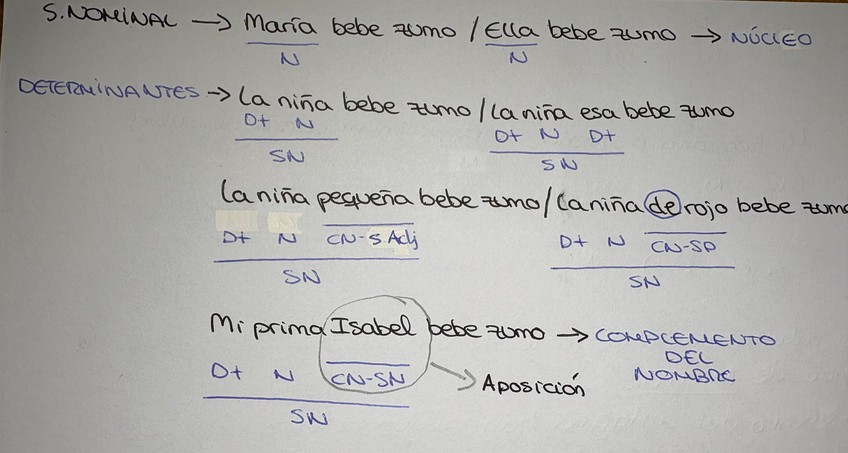 S. NOMINAL → María bebe zumo / Ella bebe zumo → NÚCLEO
N N
DETERMINANTES → La niña bebe zumo / La niña esa bebe zumo
Dt N Dt N Dt
SN SN
La niña pequeña bebe zumo / La niña de rojo bebe zumo
Dt N CN-S.Adj Dt N CN-SP
SN SN
Mi prima Isabel bebe zumo → COMPLEMENTO
DEL
NOMBRE
Dt N CN-SN Aposición
SN